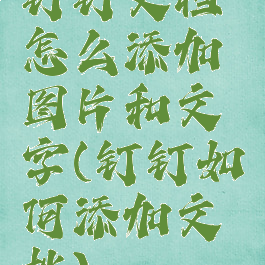 钉钉文档
怎么添加
图片和文
字(钉钉如
何添加文
档)